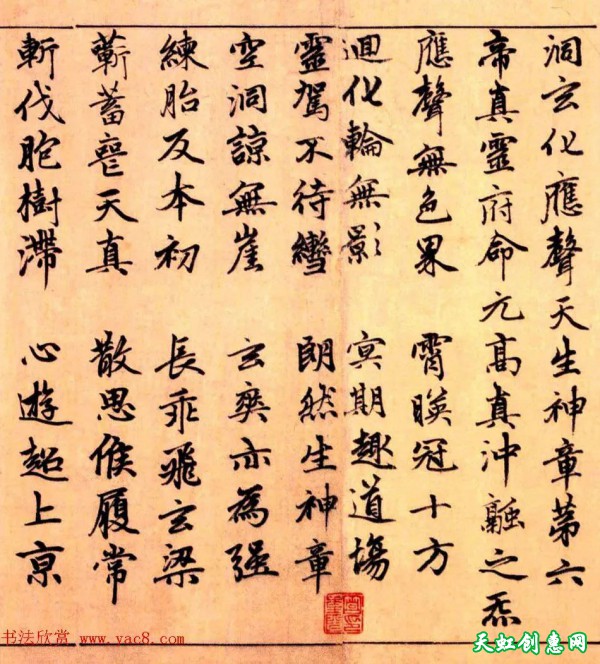 洞玄化應聲天生神章第六
帝真靈府命元高真沖融之炁
應聲無色界 霄暎冠十方
迴化輪無影 冥期趣道場
靈駕不待轡 朗然生神章
空洞諒無崖 玄爽亦為強
練胎反本初 長乖飛玄梁
蘄蓄喪天真 散思候履常
斬伐胞樹滯 心遊超上京
书法欣赏 www.yac8.com
天虹创意网